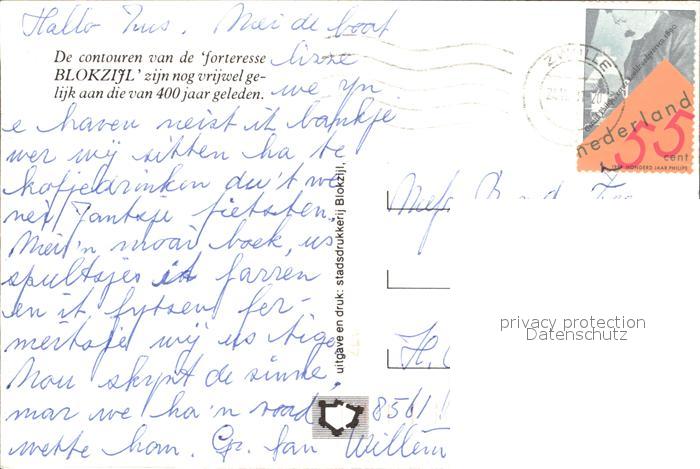 Hallo Tus. Mei de boot
De contouren van de 'forteresse
BLOKZIJL' zijn nog vrijwel ge-
lijk aan die van 400 jaar geleden.
lizze
we yn
e haven neist it bankje
wer wij sitten ha te
kofjedrinken du't we
nei Jantsje fietsten.
Mei'n moai boek, us
spultsjes
en it fytsen fer-
meitsje wij us
Nou skynt de sinne,
mar we ha'n
wette hom. Gr. fan Willem
uitgave en druk: stadsdrukkerij Blokzijl.
ZWOLLE
nederland
55
cent
1891 HONDERD JAAR PHILIPS
Mefr
H.
8561
privacy protection
Datenschutz